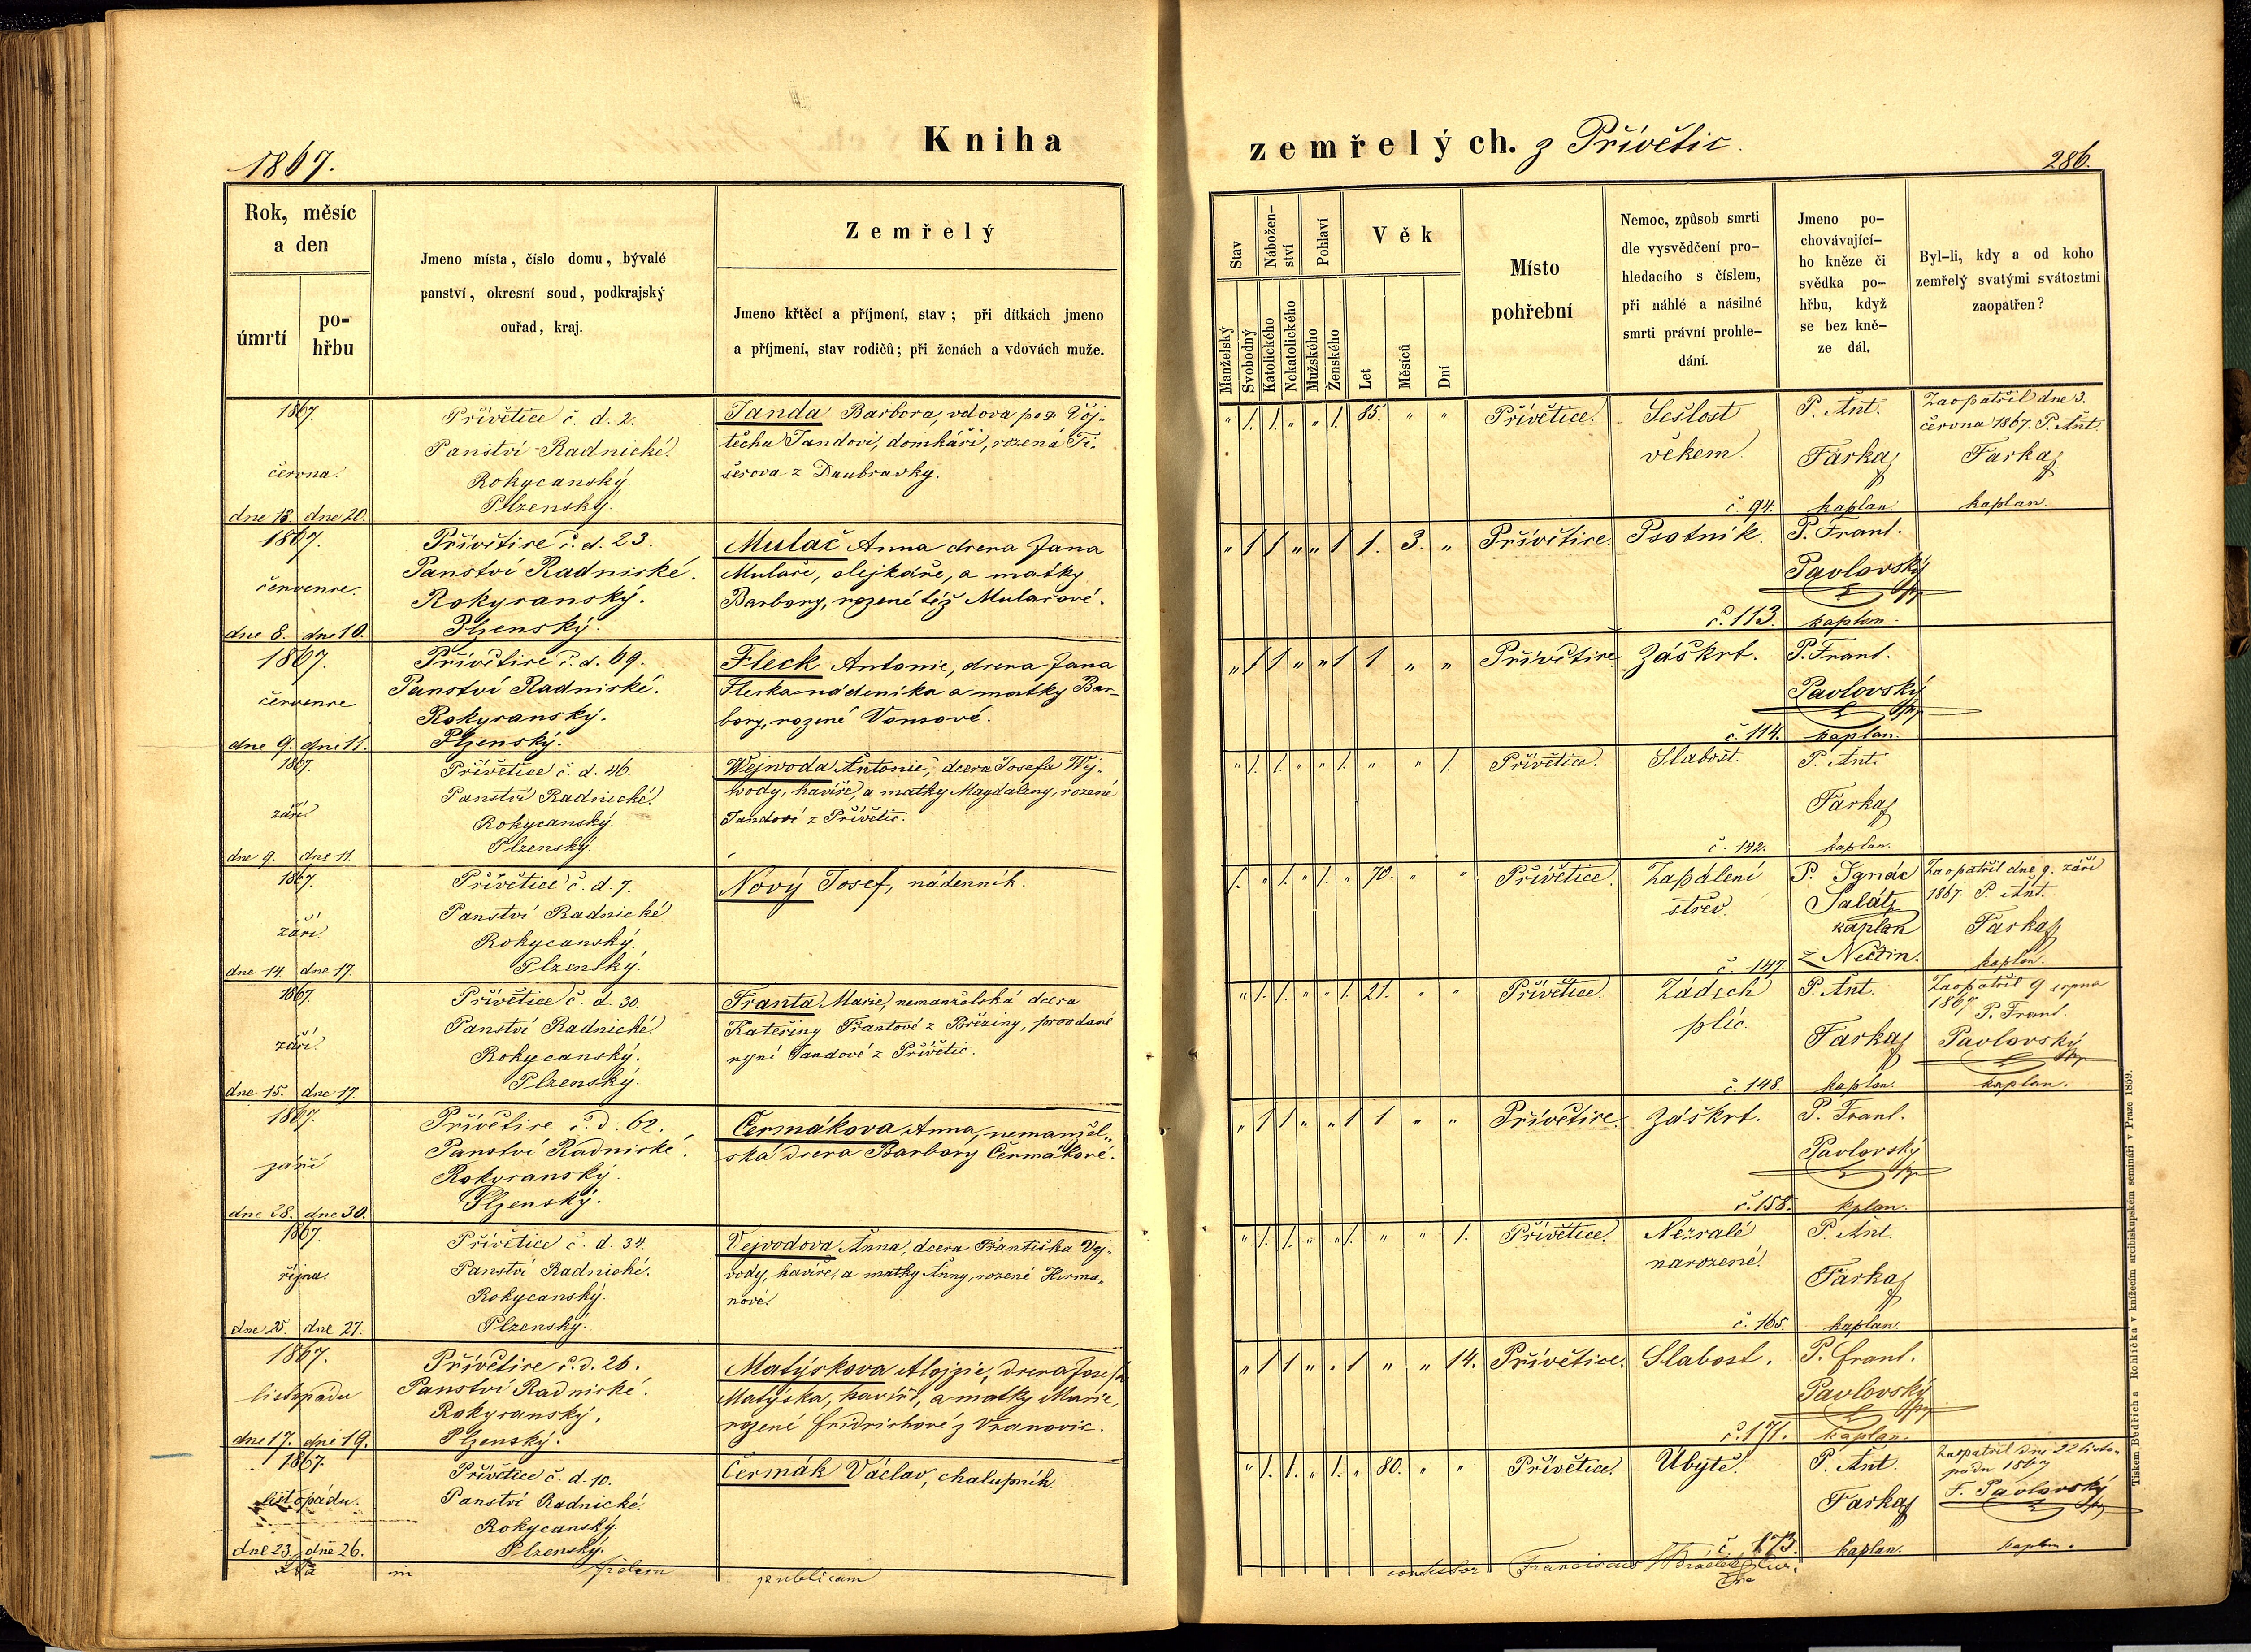 1867.
Kniha
zemřelých. z Přívětic.
286.
Rok, měsíc
a den
úmrtí
po-
hřbu
Jmeno místa, číslo domu, bývalé
panství, okresní soud, podkrajský
ouřad, kraj.
Zemřelý
Jmeno křtěcí a příjmení, stav; při dítkách jmeno
a příjmení, stav rodičů; při ženách a vdovách muže.
Stav
Nábožen-
ství
Pohlaví
Věk
Manželský
Svobodný
Katolického
Nekatolického
Mužského
Ženského
Let
Měsíců
Dní
Místo
pohřební
Nemoc, způsob smrti
dle vysvědčení pro-
hledacího s číslem,
při náhlé a násilné
smrti právní prohle-
dání.
Jmeno po-
chovávající-
ho kněze či
svědka po-
hřbu, když
se bez kně-
ze dál.
Byl-li, kdy a od koho
zemřelý svatými svátostmi
zaopatřen?
1867.
června.
dne 18. dne 20.
Přívětice č. d. 2.
Panství Radnické.
Rokycanský.
Plzenský.
Janda Barbora, vdova po Voj-
těchu Jandovi, domkáři, rozená Ti-
šerova z Daubravky.
" 1. 1. " " 1. 85. " "
Přívětice.
Sešlost
věkem.
č. 94.
P. Ant.
Farka
kaplan.
Zaopatřil dne 3.
června 1867. P. Ant.
Farka
kaplan.
1867.
července.
dne 8. dne 10.
Přívětice č. d. 23.
Panství Radnické.
Rokycanský.
Plzenský.
Mulač Anna dcera Jana
Mulače, olejkáře, a matky
Barbory, rozené též Mulačové.
" 1 1 " " 1 1. 3. "
Přívětice.
Psotník.
č. 113.
P. Frant.
Pavlovský
kaplan.
1867.
července
dne 9. dne 11.
Přívětice č. d. 69.
Panství Radnické.
Rokycanský.
Plzenský.
Fleck Antonie, dcera Jana
Flecka nádeníka a matky Bar-
bory, rozené Vonsové.
" 1 1 " " 1 1 " "
Přívětice
Záškrt.
č. 114.
P. Frant.
Pavlovský
kaplan.
1867.
září
dne 9. dne 11.
Přívětice č. d. 46.
Panství Radnické.
Rokycanský.
Plzenský.
Wejwoda Antonie, dcera Josefa Wej-
wody, havíře, a matky Magdaleny, rozené
Jandové z Přívětic.
" 1. 1. " " 1. " " 1.
Přívětice.
Slabost.
č. 142.
P. Ant.
Farka
kaplan.
1867.
září.
dne 14. dne 17.
Přívětice č. d. 7.
Panství Radnické.
Rokycanský.
Plzenský.
Nový Josef, nádenník.
1. " 1. " 1. " 70. " "
Přívětice.
Zapálení
střev.
č. 147.
P. Ignác
Salátz
kaplan
z Nečtin.
Zaopatřil dne 9. září
1867. P. Ant.
Farka
kaplan.
1867.
září.
dne 15. dne 17.
Přívětice č. d. 30.
Panství Radnické.
Rokycanský.
Plzenský.
Franta Marie, nemanželská dcera
Kateřiny Frantové z Březiny, provdané
nyní Jandové z Přívětic.
" 1. 1. " " 1. 21. " "
Přívětice.
Zádych
plic.
č. 148.
P. Ant.
Farka
kaplan.
Zaopatřil 9 srpna
1867 P. Frant.
Pavlovský
kaplan.
1867.
září
dne 28. dne 30.
Přívětice č. d. 62.
Panství Radnické.
Rokycanský.
Plzenský.
Čermákova Anna, nemanžel-
ská dcera Barbory Čermákové.
" 1 1 " " 1 1 " "
Přívětice.
Záškrt.
č. 158.
P. Frant.
Pavlovský
kplan.
1867.
října.
dne 25. dne 27.
Přívětice č. d. 34.
Panství Radnické.
Rokycanský.
Plzenský.
Vejvodova Anna, dcera Františka Vej-
vody, havíře, a matky Anny, rozené Hirma-
nové.
" 1. 1. " " 1. " " 1.
Přívětice.
Nezralé
narozené.
č. 165.
P. Ant.
Farka
kaplan.
1867.
listopadu
dne 17. dne 19.
Přívětice č. d. 26.
Panství Radnické.
Rokycanský.
Plzenský.
Matýskova Alojzie, dcera Josefa
Matýska, havíře, a matky Marie,
rozené Fridrichové z Vranovic.
" 1 1 " " 1 " " 14.
Přívětice.
Slabost.
č. 171.
P. Frant.
Pavlovský
kaplan.
1867
listopadu.
dne 23. dne 26.
Přívětice č. d. 10.
Panství Radnické.
Rokycanský.
Plzenský.
Čermák Václav, chalupník.
" 1. 1. " 1. " 80. " "
Přívětice.
Úbytě.
č. 173.
P. Ant.
Farka
kaplan.
Zaopatřil dne 22 listo-
padu 1867
F. Pavlovský
kaplan.
in fidem publicam
Franciscus
Tiskem Bedřicha Rohlíčka v knížecím arcibiskupském semináři v Praze 1859.